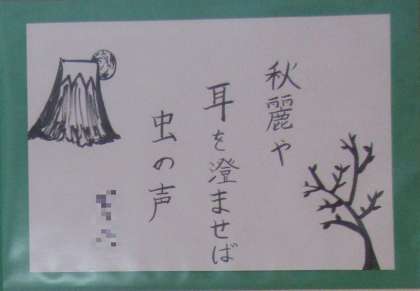 秋麗や
耳を澄ませば
虫の声